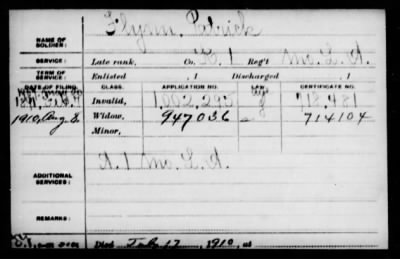 NAME OF SOLDIER: Flynn, Patrick
SERVICE: Late rank, Co. K, 1 Reg't Mo. L. A.
TERM OF SERVICE: Enlisted , 1 Discharged , 1
DATE OF FILING. CLASS. APPLICATION NO. LAW. CERTIFICATE NO.
Invalid, 1,002,295 718,481
1910, Aug 8 Widow, 947036 714104
Minor,
ADDITIONAL SERVICES: A. 1 Mo. L. A.
REMARKS:
Died July 17, 1910, at